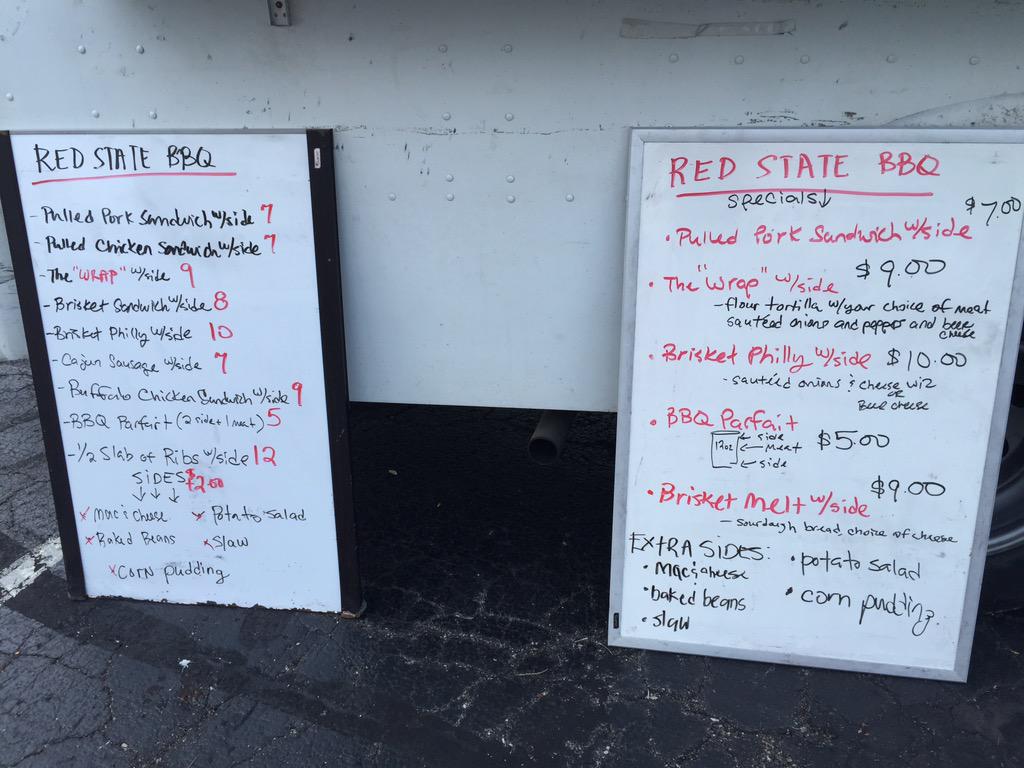 RED STATE BBQ
- Pulled Pork Sandwich w/side 7
- Pulled Chicken Sandwich w/side 7
- The "WRAP" w/side 9
- Brisket Sandwich w/side 8
- Brisket Philly w/side 10
- Cajun Sausage w/side 7
- Buffalo Chicken Sandwich w/side 9
- BBQ Parfait (2 side + 1 meat) 5
- 1/2 Slab of Ribs w/side 12
SIDES $2.00
x Mac & cheese x Potato Salad
x Baked Beans x Slaw
x Corn pudding
RED STATE BBQ
specials↓
$7.00
• Pulled Pork Sandwich w/side
$9.00
• The "Wrap" w/side
- flour tortilla w/your choice of meat
sautéed onions and pepper and beer
cheese
• Brisket Philly w/side $10.00
- sautéed onions & cheese wiz
or
Beer cheese
• BBQ Parfait
12oz ← side
← Meat $5.00
← side
$9.00
• Brisket Melt w/side
- sourdough bread, choice of cheese
EXTRA SIDES: • potato salad
• Mac & cheese
• baked beans • corn pudding
• slaw